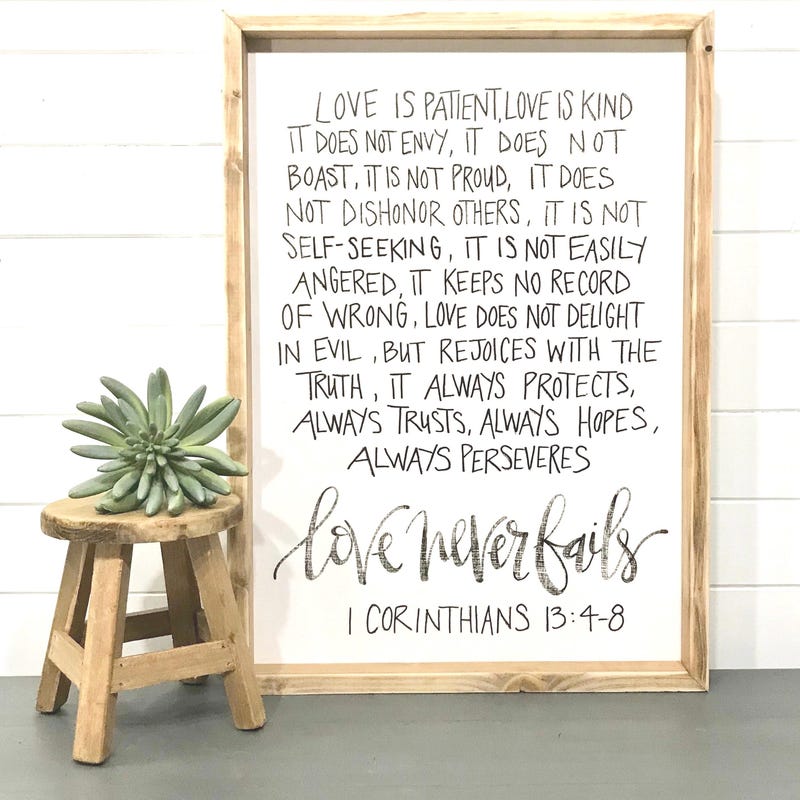 LOVE IS PATIENT, LOVE IS KIND
IT DOES NOT ENVY, IT DOES NOT
BOAST, IT IS NOT PROUD, IT DOES
NOT DISHONOR OTHERS, IT IS NOT
SELF-SEEKING, IT IS NOT EASILY
ANGERED, IT KEEPS NO RECORD
OF WRONG, LOVE DOES NOT DELIGHT
IN EVIL, BUT REJOICES WITH THE
TRUTH, IT ALWAYS PROTECTS,
ALWAYS TRUSTS, ALWAYS HOPES,
ALWAYS PERSEVERES
love never fails
1 CORINTHIANS 13:4-8